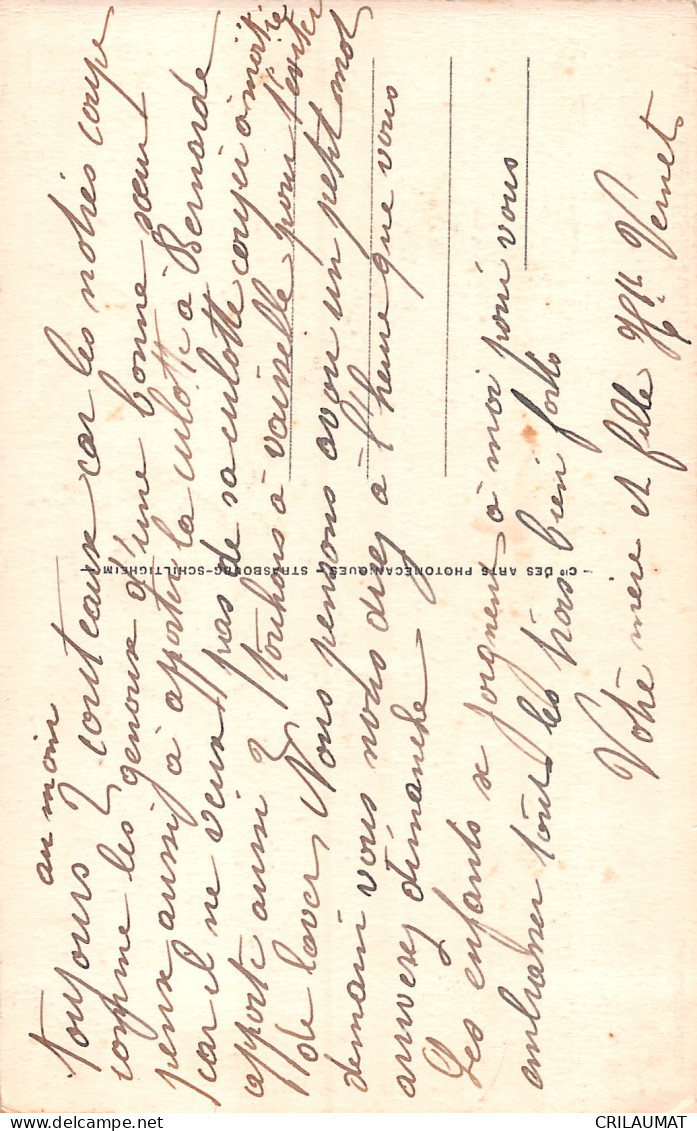 au moin
toujours 2 couteaux car les notres coupe
comme les genoux d'une bonne sœur
peux aussi à apporter la culotte à Bernarde
car il ne veux pas de sa culotte
apporte aussi 2 torchons à vaisselle pour t'éviter
de laver, Nous pensons avoir un petit mot
demain vous nous direz à l'heure que vous
arriverez dimanche
Les enfants se joignent à moi pour vous
embrasser tout les trois bien forts
Votre mère et fille Vernet
- Cie DES ARTS PHOTOMÉCANIQUES - STRASBOURG-SCHILTIGHEIM -
CRILAUMAT